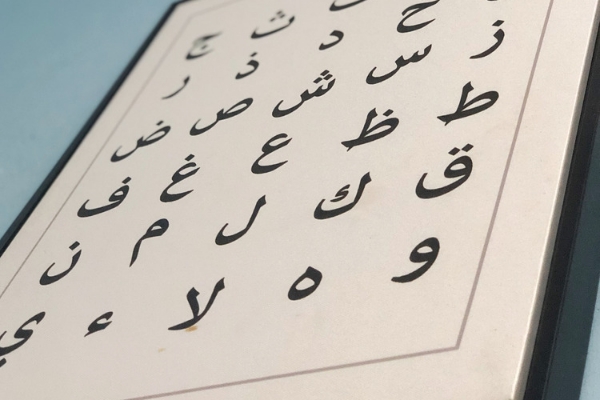 ث ج
د ذ ر
ز س ش ص ض
ط ظ ع غ ف
ق ك ل م ن
و ه لا ء ي